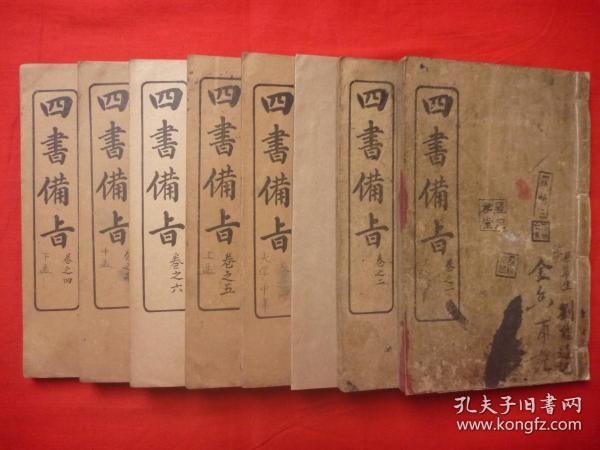 四書備旨
卷之一
四書備旨
卷之二
四書備旨
大學中庸
四書備旨
卷之五
上孟
四書備旨
卷之六
四書備旨
中孟
四書備旨
卷之四
下孟
孔夫子旧书网
www.kongfz.com